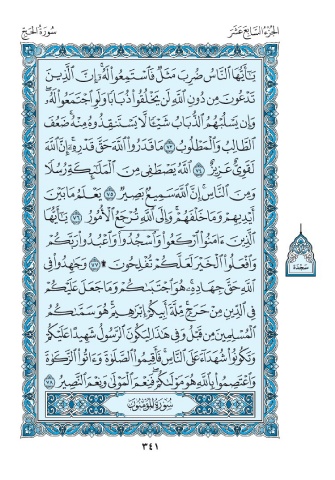 الجزء السابع عشر
سورة الحج
يَٰٓأَيُّهَا ٱلنَّاسُ ضُرِبَ مَثَلٌ فَٱسْتَمِعُوا۟ لَهُۥٓ ۚ إِنَّ ٱلَّذِينَ
تَدْعُونَ مِن دُونِ ٱللَّهِ لَن يَخْلُقُوا۟ ذُبَابًا وَلَوِ ٱجْتَمَعُوا۟ لَهُۥ ۖ
وَإِن يَسْلُبْهُمُ ٱلذُّبَابُ شَيْـًٔا لَّا يَسْتَنقِذُوهُ مِنْهُ ۚ ضَعُفَ
ٱلطَّالِبُ وَٱلْمَطْلُوبُ ٧٣ مَا قَدَرُوا۟ ٱللَّهَ حَقَّ قَدْرِهِۦٓ ۗ إِنَّ ٱللَّهَ
لَقَوِىٌّ عَزِيزٌ ٧٤ ٱللَّهُ يَصْطَفِى مِنَ ٱلْمَلَٰٓئِكَةِ رُسُلًا
وَمِنَ ٱلنَّاسِ ۚ إِنَّ ٱللَّهَ سَمِيعٌۢ بَصِيرٌ ٧٥ يَعْلَمُ مَا بَيْنَ
أَيْدِيهِمْ وَمَا خَلْفَهُمْ ۗ وَإِلَى ٱللَّهِ تُرْجَعُ ٱلْأُمُورُ ٧٦ يَٰٓأَيُّهَا
ٱلَّذِينَ ءَامَنُوا۟ ٱرْكَعُوا۟ وَٱسْجُدُوا۟ وَٱعْبُدُوا۟ رَبَّكُمْ
وَٱفْعَلُوا۟ ٱلْخَيْرَ لَعَلَّكُمْ تُفْلِحُونَ ۩ ٧٧ وَجَٰهِدُوا۟ فِى
ٱللَّهِ حَقَّ جِهَادِهِۦ ۚ هُوَ ٱجْتَبَىٰكُمْ وَمَا جَعَلَ عَلَيْكُمْ
فِى ٱلدِّينِ مِنْ حَرَجٍ ۚ مِّلَّةَ أَبِيكُمْ إِبْرَٰهِيمَ ۚ هُوَ سَمَّىٰكُمُ
ٱلْمُسْلِمِينَ مِن قَبْلُ وَفِى هَٰذَا لِيَكُونَ ٱلرَّسُولُ شَهِيدًا عَلَيْكُمْ
وَتَكُونُوا۟ شُهَدَآءَ عَلَى ٱلنَّاسِ ۚ فَأَقِيمُوا۟ ٱلصَّلَوٰةَ وَءَاتُوا۟ ٱلزَّكَوٰةَ
وَٱعْتَصِمُوا۟ بِٱللَّهِ هُوَ مَوْلَىٰكُمْ ۖ فَنِعْمَ ٱلْمَوْلَىٰ وَنِعْمَ ٱلنَّصِيرُ ٧٨
سورة المؤمنون
سجدة
٣٤١